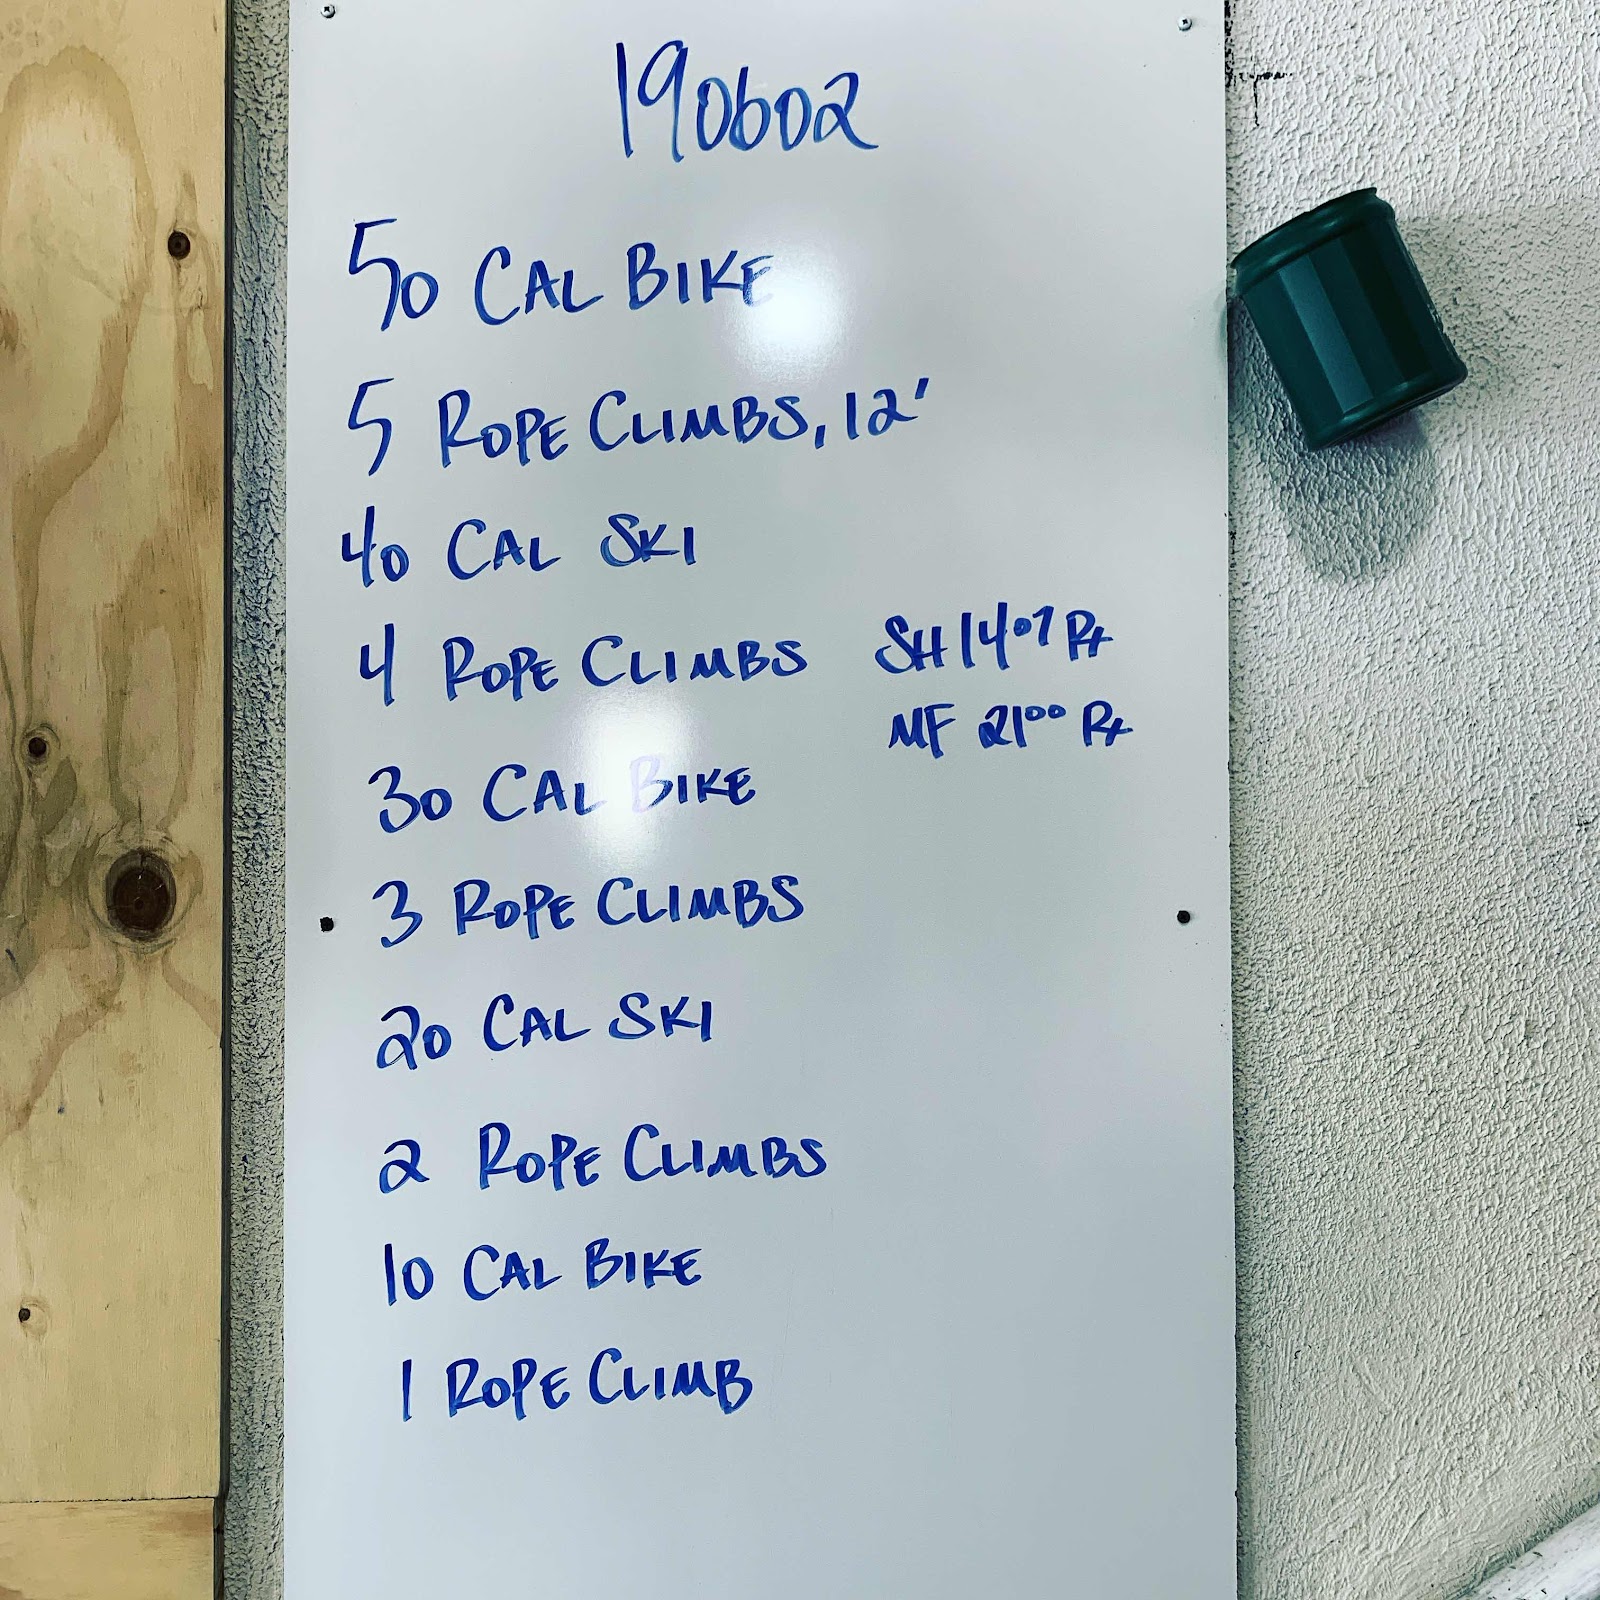 190602
50 CAL BIKE
5 ROPE CLIMBS, 12'
40 CAL SKI
4 ROPE CLIMBS
SH 14:07 Rx
MF 21:00 Rx
30 CAL BIKE
3 ROPE CLIMBS
20 CAL SKI
2 ROPE CLIMBS
10 CAL BIKE
1 ROPE CLIMB